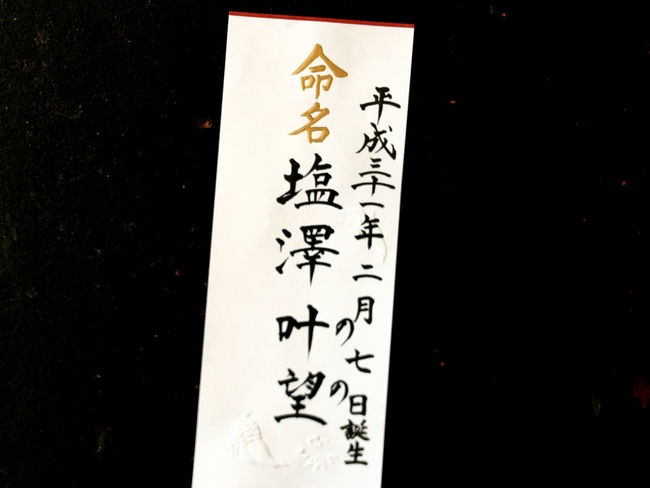 平成三十一年二月七日誕生
命名
塩澤叶望
のの